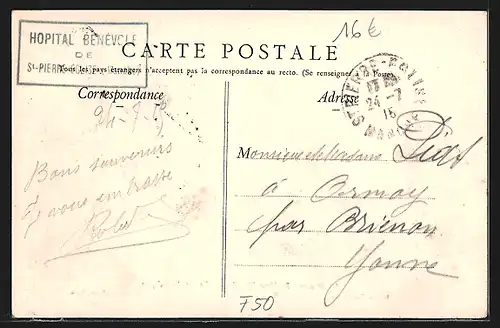 HOPITAL BÉNÉVOLE
DE
St-PIERRE-
16€
CARTE POSTALE
Tous les pays étrangers n'acceptent pas la correspondance au recto. (Se renseigner à la Poste)
Correspondance
Adresse
24-7
15
MANCHE
24-7-15
Bons souvenirs
vous embrasse
Robert
Monsieur et Madame
à Ormoy
par Brienon
Yonne
F50